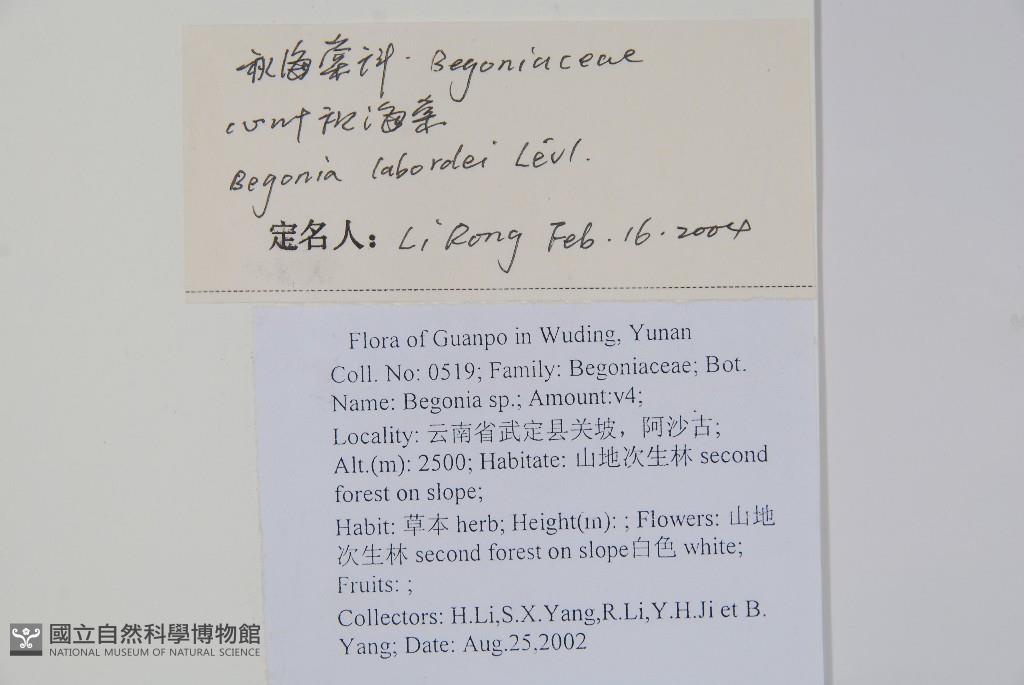 秋海棠科. Begoniaceae
心叶秋海棠
Begonia labordei Lévl.
定名人: Li Rong Feb. 16. 2004
Flora of Guanpo in Wuding, Yunan
Coll. No: 0519; Family: Begoniaceae; Bot.
Name: Begonia sp.; Amount:v4;
Locality: 云南省武定县关坡，阿沙古;
Alt.(m): 2500; Habitate: 山地次生林 second
forest on slope;
Habit: 草本 herb; Height(m): ; Flowers: 山地
次生林 second forest on slope白色 white;
Fruits: ;
Collectors: H.Li,S.X.Yang,R.Li,Y.H.Ji et B.
Yang; Date: Aug.25,2002
國立自然科學博物館
NATIONAL MUSEUM OF NATURAL SCIENCE